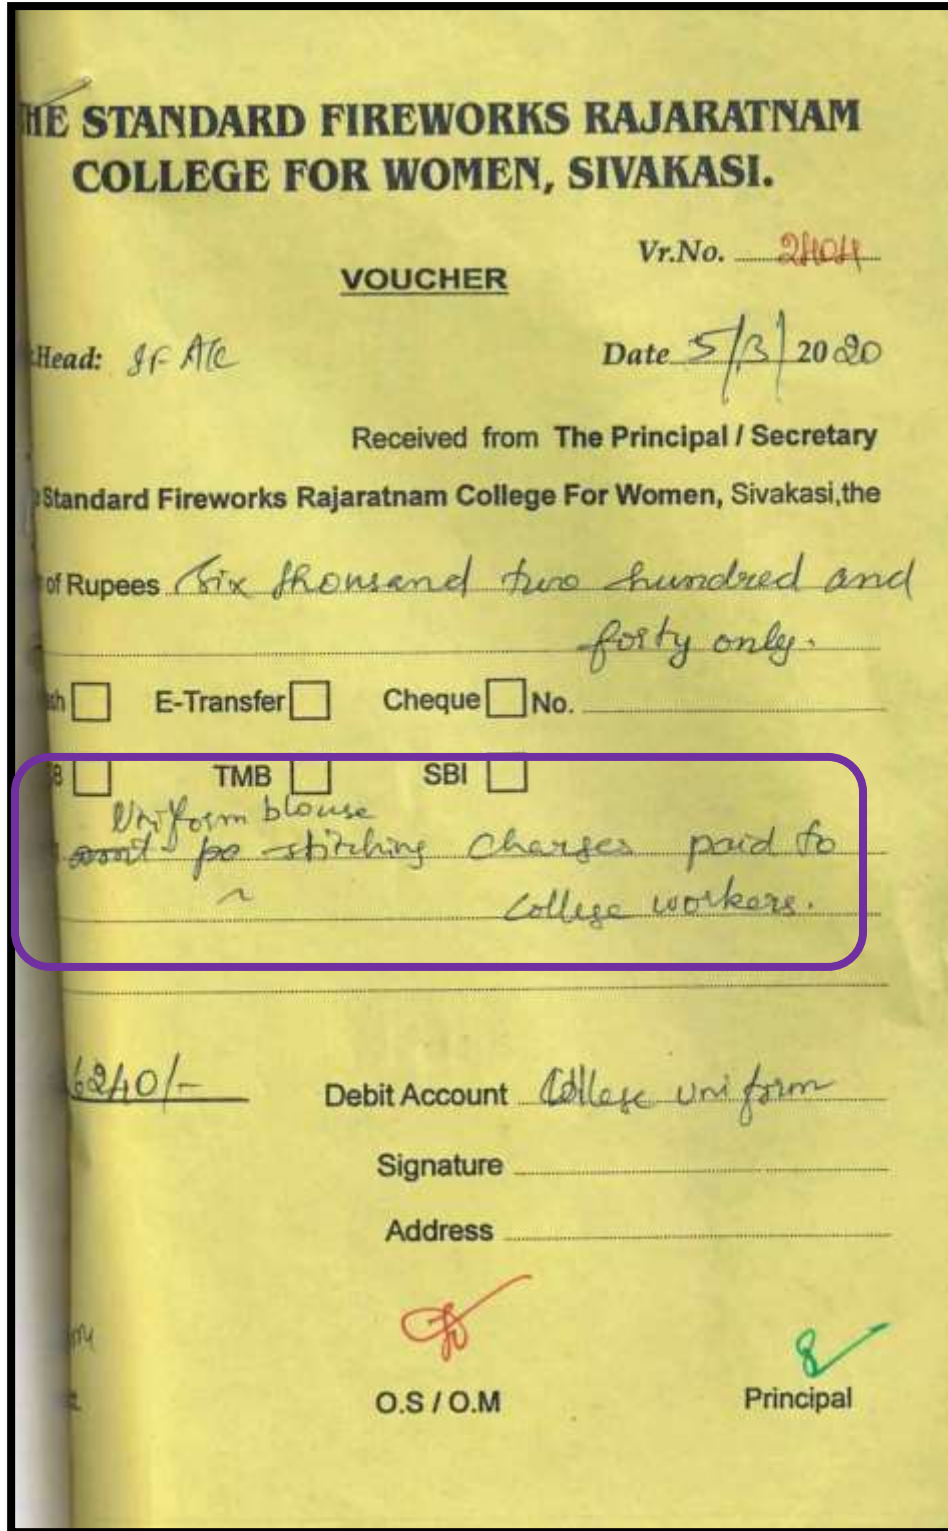 THE STANDARD FIREWORKS RAJARATNAM
COLLEGE FOR WOMEN, SIVAKASI.
Vr.No. 2404
VOUCHER
Head: SF A/c
Date 5/3/2020
Received from The Principal / Secretary
Standard Fireworks Rajaratnam College For Women, Sivakasi,the
of Rupees Six thousand two hundred and
forty only.
E-Transfer Cheque No.
TMB SBI
Uniform blouse
stitching charges paid to
college workers.
6240/- Debit Account College uniform
Signature
Address
O.S / O.M Principal